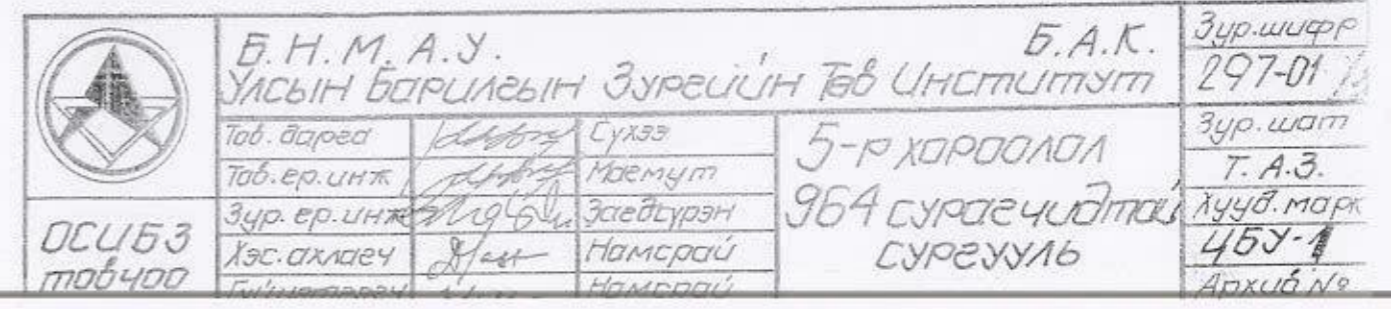 Б.Н.М.А.У. Б.А.К.
Улсын Барилгын Зургийн Төв Институт
Зур.шифр
297-01
Тов.дарга Сүхээ
Тов.ер.инж Маемут
Зур.ер.инж Загдсүрэн
Хэс.ахлагч Намсрай
Намсрай
ОСИБЗ
товчоо
5-р хороолол
964 сурагчидтай
сургууль
Зур.шат
Т.А.З.
Хууд.марк
ЦБУ-1
Архив №